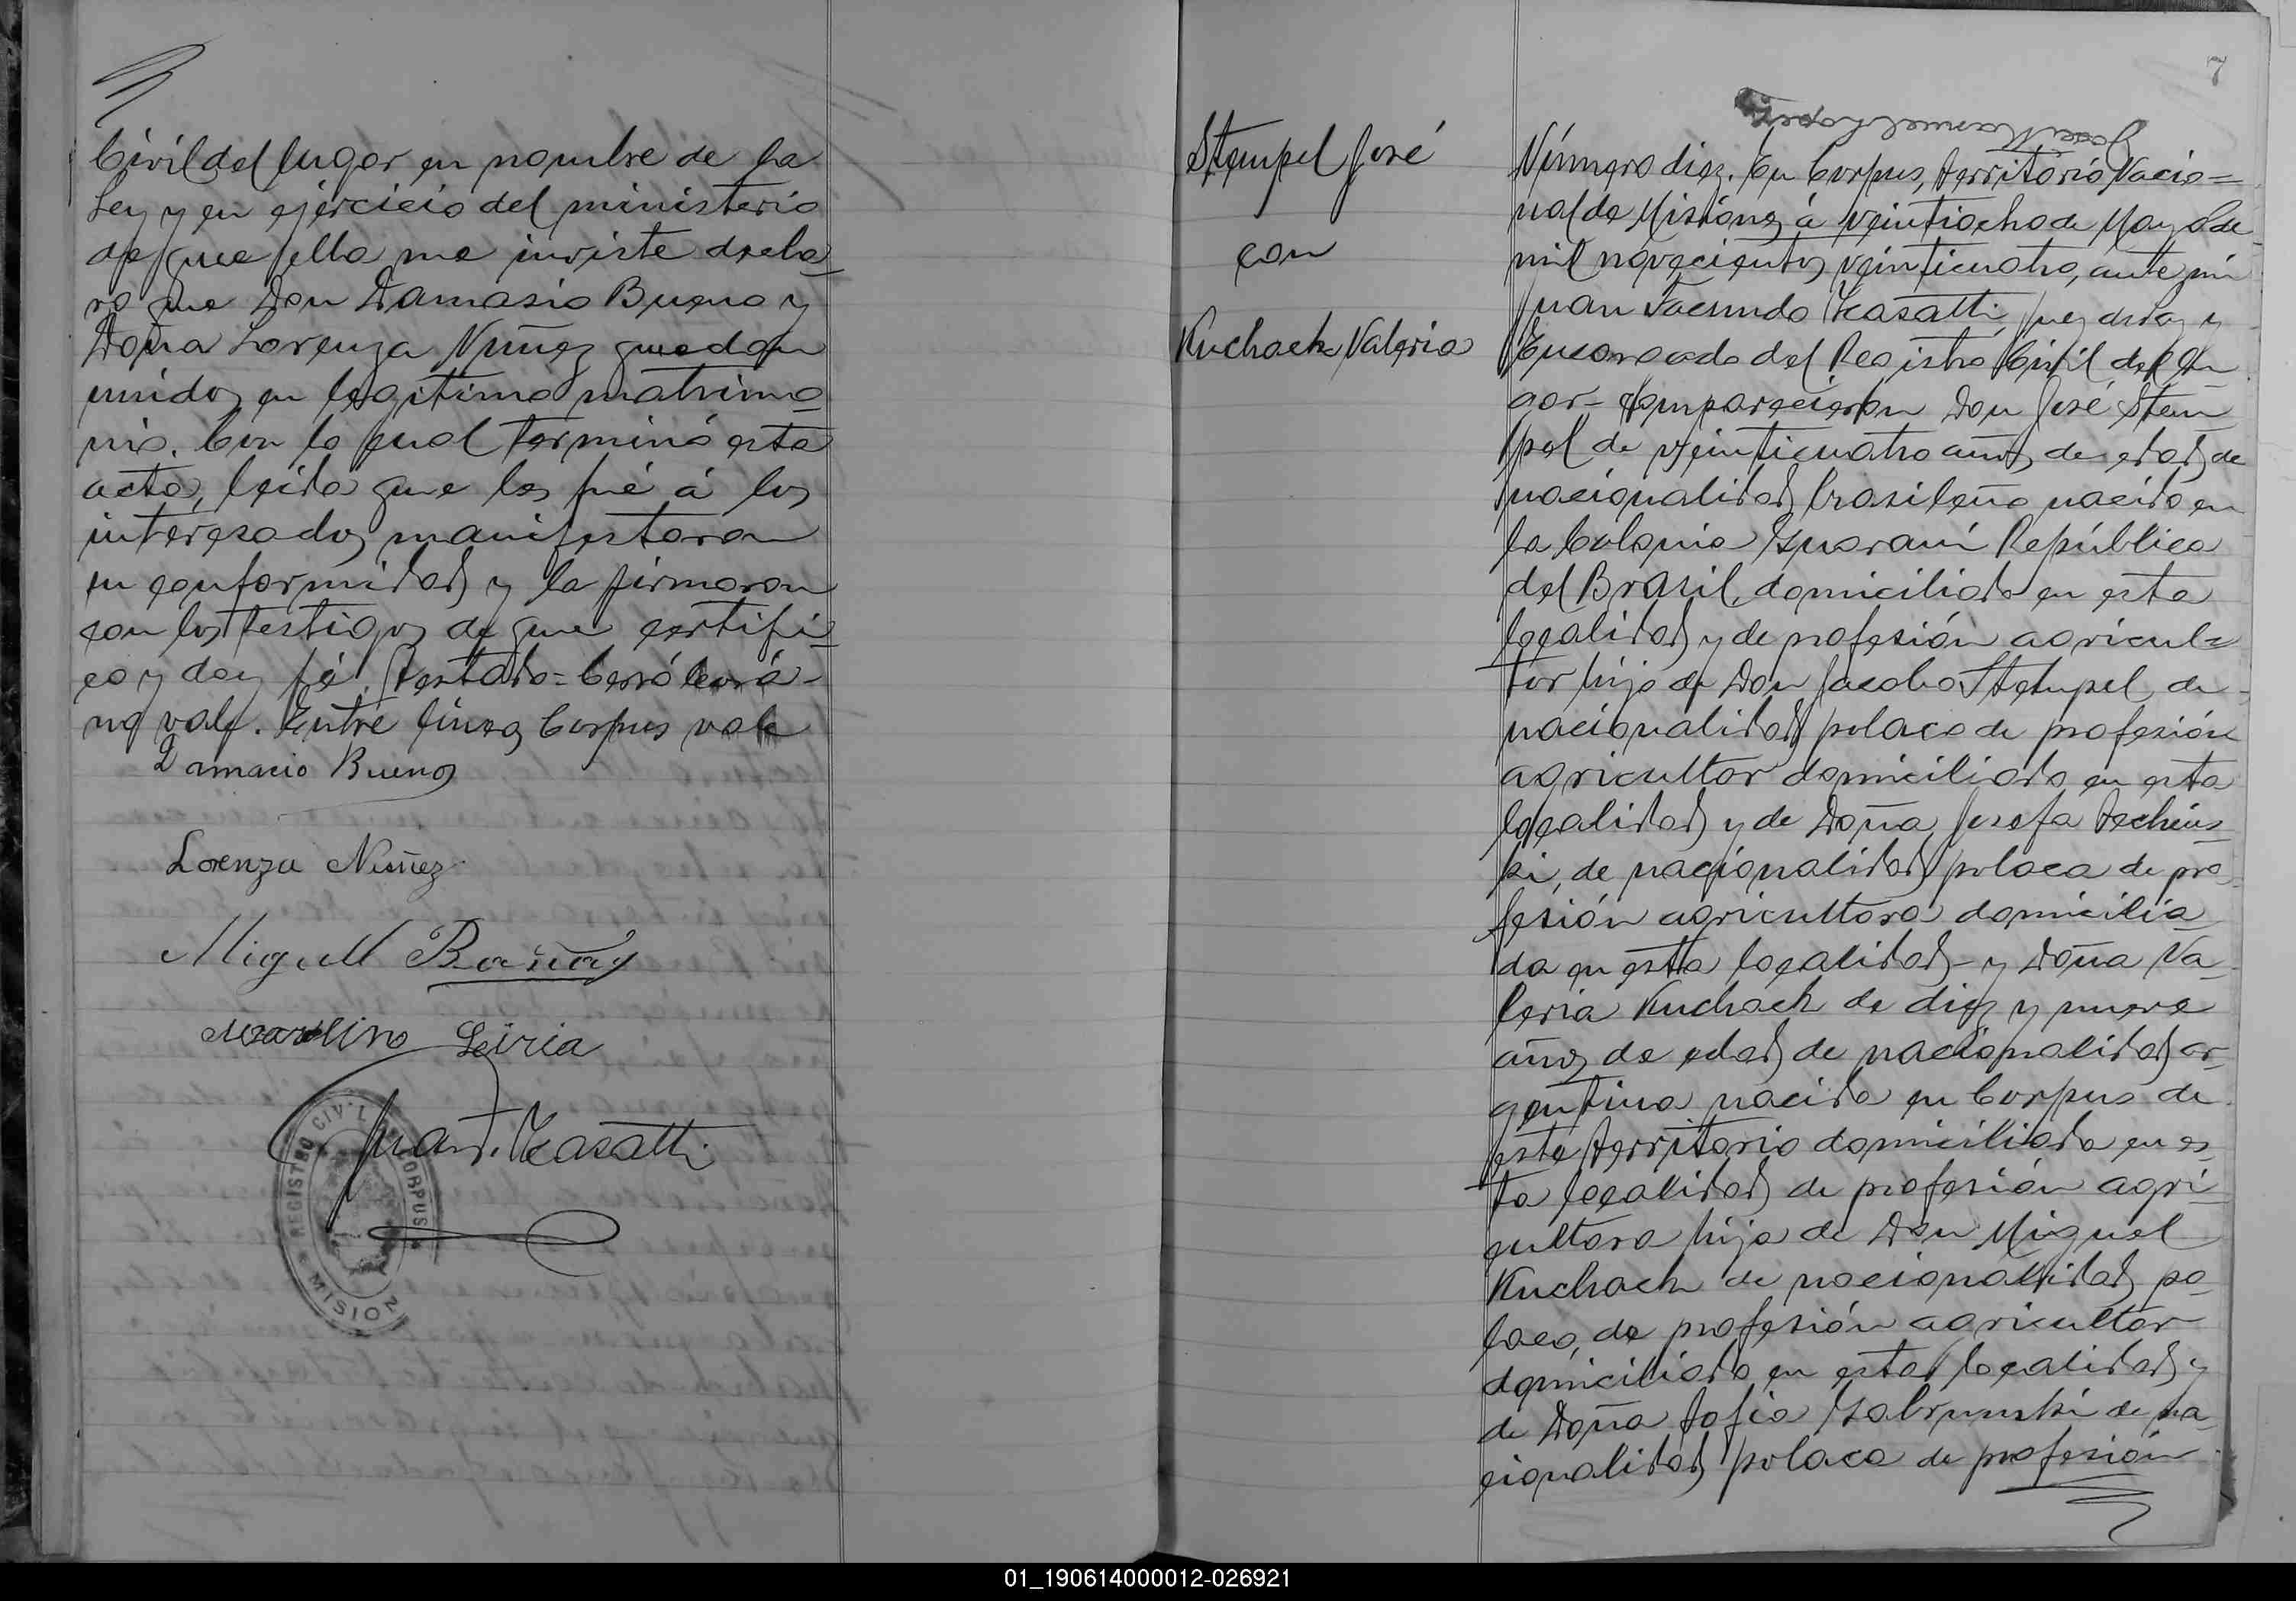 Civil del lugar en nombre de la
Ley y en ejercicio del ministerio
de que ella me inviste decla=
ro que Don Damasio Bueno y
Doña Lorenza Nuñez quedan
unidos en legítimo matrimo=
nio. Con lo cual terminó esta
acta, leida que les fué á los
interesados manifestaron
su conformidad y la firmaron
con los testigos de que certifi=
co y doy fé. Testado=
no vale. Entre lineas Corpus vale
Damacio Bueno
Lorenza Nuñez
Miguel
Marcelino Leiria
Juan F. Casatti
REGISTRO CIVIL CORPUS
MISION
7
José Manuel Lopez
Stempel José
con
Kuchach Valeria
Número diez. En Corpus, territorio Nacio=
nal de Misiones á veintiocho de Mayo de
mil novecientos veinticuatro, ante mí
Juan Facundo Casatti Juez de Paz y
Encargado del Registro Civil del lu
gar= Comparecieron Don José Stem
pel de veinticuatro años de edad, de
nacionalidad brasileña nacido en
la Colonia Guaraní República
del Brasil, domiciliado en esta
localidad y de profesión agricul=
tor hijo de Don Jacobo Stempel, de
nacionalidad polaco de profesión
agricultor domiciliado en esta
localidad y de Doña Josefa
ki, de nacionalidad polaca de pro
fesión agricultora domicilia
da en esta localidad= y Doña Va
leria Kuchach de diez y nueve
años de edad de nacionalidad ar
gentina nacida en Corpus de
este territorio domiciliada en es
ta localidad de profesión agri
cultora hija de Don Miguel
Kuchach de nacionalidad po
laco, de profesión agricultor
domiciliado en esta localidad y
de Doña Sofia de na
cionalidad polaca de profesión
01_190614000012-026921